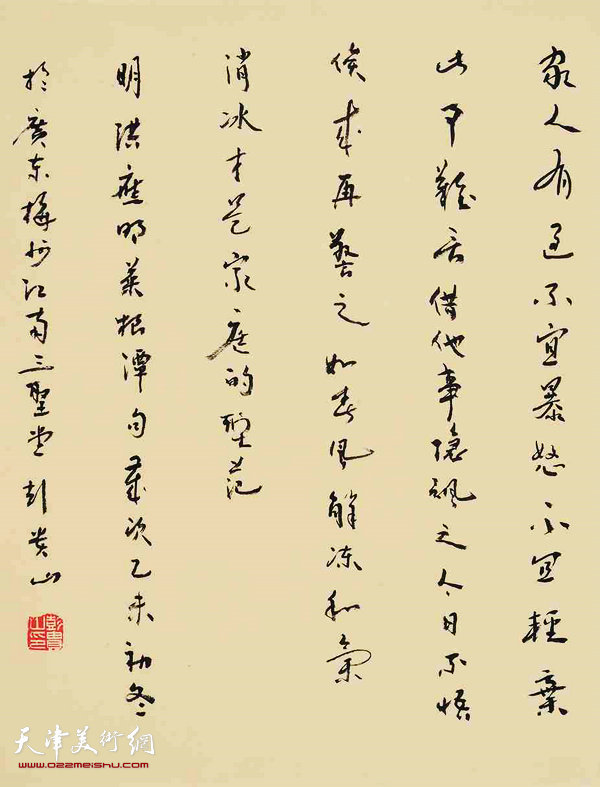 家人有過不宜暴怒不宜輕棄
此事難言借他事隱諷之今日不悟
俟來再警之如春風解凍和氣
消冰才是家庭的型范
明洪應明菜根潭句歲次乙未初冬
於廣东梅州江南三聖堂彭贵山
彭貴山印
天津美術網
www.022meishu.com